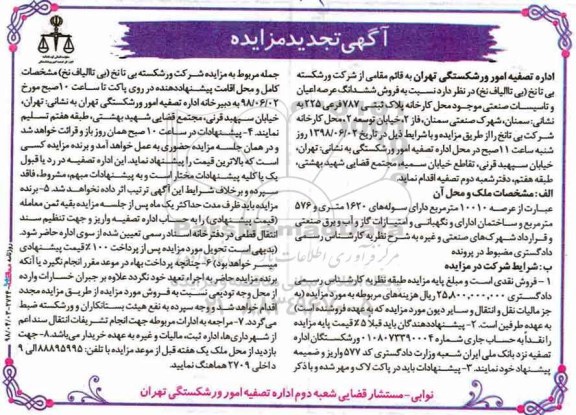 آگهی تجدید مزایده
اداره تصفیه امور ورشکستگی تهران به قائم مقامی از شرکت ورشکسته
بی تا نخ (بی تاالیاف نخ) در نظر دارد نسبت به فروش ششدانگ عرصه اعیان
و تاسیسات صنعتی موجود محل کارخانه پلاک ثبتی
نشانی: سمنان، شهرک صنعتی سمنان، فاز ۲، خیابان توسعه ۲، محل کارخانه
شرکت بی تا نخ را از طریق مزایده و با شرایط ذیل در تاریخ ۱۳۹۸/۰۶/۰۲ روز
شنبه ساعت ۱۱ صبح در محل اداره تصفیه امور ورشکستگی به نشانی: تهران،
خیابان سپهبد قرنی، تقاطع خیابان سمیه، مجتمع قضایی شهید بهشتی،
طبقه هفتم، دفتر شعبه دوم تصفیه اقدام نماید.
الف: مشخصات ملک و محل آن
عبارت از عرصه ۱۰۰۱۰ مترمربع دارای سوله‌های ۱۶۲۰ متری و ۵۷۶
مترمربع و ساختمان اداری و نگهبانی و امتیازات گاز و آب و برق صنعتی
و قرارداد شهرک‌های صنعتی و غیره به شرح نظریه کارشناس رسمی
دادگستری مضبوط در پرونده
ب: شرایط شرکت در مزایده
۱- فروش نقدی است و مبلغ پایه مزایده طبق نظریه کارشناس رسمی
دادگستری ۲۵,۸۰۰,۰۰۰,۰۰۰ ریال هزینه‌های مربوطه به مورد مزایده (به
جز مالیات نقل و انتقال و سایر دیون مورد مزایده که به عهده فروشنده است)
به عهده طرفین است. ۲- پیشنهاددهندگان باید قبلا ۵٪ قیمت پایه مزایده
را نقداً به حساب جاری شماره ۰۱۰۸۰۷۳۳۹۰۰۰۴ ورشکستگان اداره
تصفیه نزد بانک ملی ایران شعبه وزارت دادگستری کد ۵۷۷ واریز و ضمیمه
پیشنهاد خود نمایند. ۳- پیشنهادات باید در پاکت لاک و مهر شده و با ذکر
جمله مربوط به مزایده شرکت ورشکسته بی تا نخ (بی تاالیاف نخ) مشخصات
کامل و محل اقامت پیشنهاددهنده در روی پاکت تا ساعت ۱۰ صبح مورخ
۹۸/۰۶/۰۲ به دبیرخانه اداره تصفیه امور ورشکستگی تهران به نشانی: تهران،
خیابان سپهبد قرنی، مجتمع قضایی شهید بهشتی، طبقه هفتم تسلیم
نمایند. ۴- پیشنهادات در ساعت ۱۰ صبح همان روز باز و قرائت خواهد شد
و در همان جلسه مزایده حضوری به عمل خواهد آمد و برنده مزایده کسی
است که بالاترین قیمت را پیشنهاد نماید. این اداره تصفیه در رد یا قبول
یک یا کلیه پیشنهادات مختار است و به پیشنهادات مبهم، مشروط، فاقد
سپرده و برخلاف شرایط این آگهی ترتیب اثر داده نخواهد شد. ۵- برنده
مزایده باید ظرف مدت حداکثر یک ماه پس از جلسه مزایده بقیه ثمن معامله
(قیمت پیشنهادی) را به حساب اداره تصفیه واریز و جهت تنظیم سند
انتقال قطعی در دفترخانه اسناد رسمی تعیین شده از سوی اداره حاضر شود.
(بدیهی است تحویل مورد مزایده پس از پرداخت ۱۰۰٪ قیمت پیشنهادی
میسر خواهد بود) ۶- چنانچه پرداخت بهاء در موعد مقرر انجام نگیرد یا آنکه
برنده مزایده حاضر به اجراء تعهد خود نگردد علاوه بر جبران خسارات وارده
از محل وجه تودیعی نسبت به فروش مورد مزایده از طریق مزایده مجدد
اقدام خواهد شد و وجه سپرده به نفع هیئت بستانکاران و ورشکسته ضبط
می‌گردد. ۷- مراجعه به ادارات مربوطه جهت انجام تشریفات انتقال سند اعم
از شهرداری‌ها، اداره ثبت، مالیات و غیره به عهده خریدار می‌باشد. ۸- جهت
بازدید از محل ملک یک هفته قبل از موعد مزایده با تلفن: ۸۸۸۹۵۹۹۵ الی ۹
داخلی ۲۷۰۹ هماهنگ نمایید.
نوابی- مستشار قضایی شعبه دوم اداره تصفیه امور ورشکستگی تهران